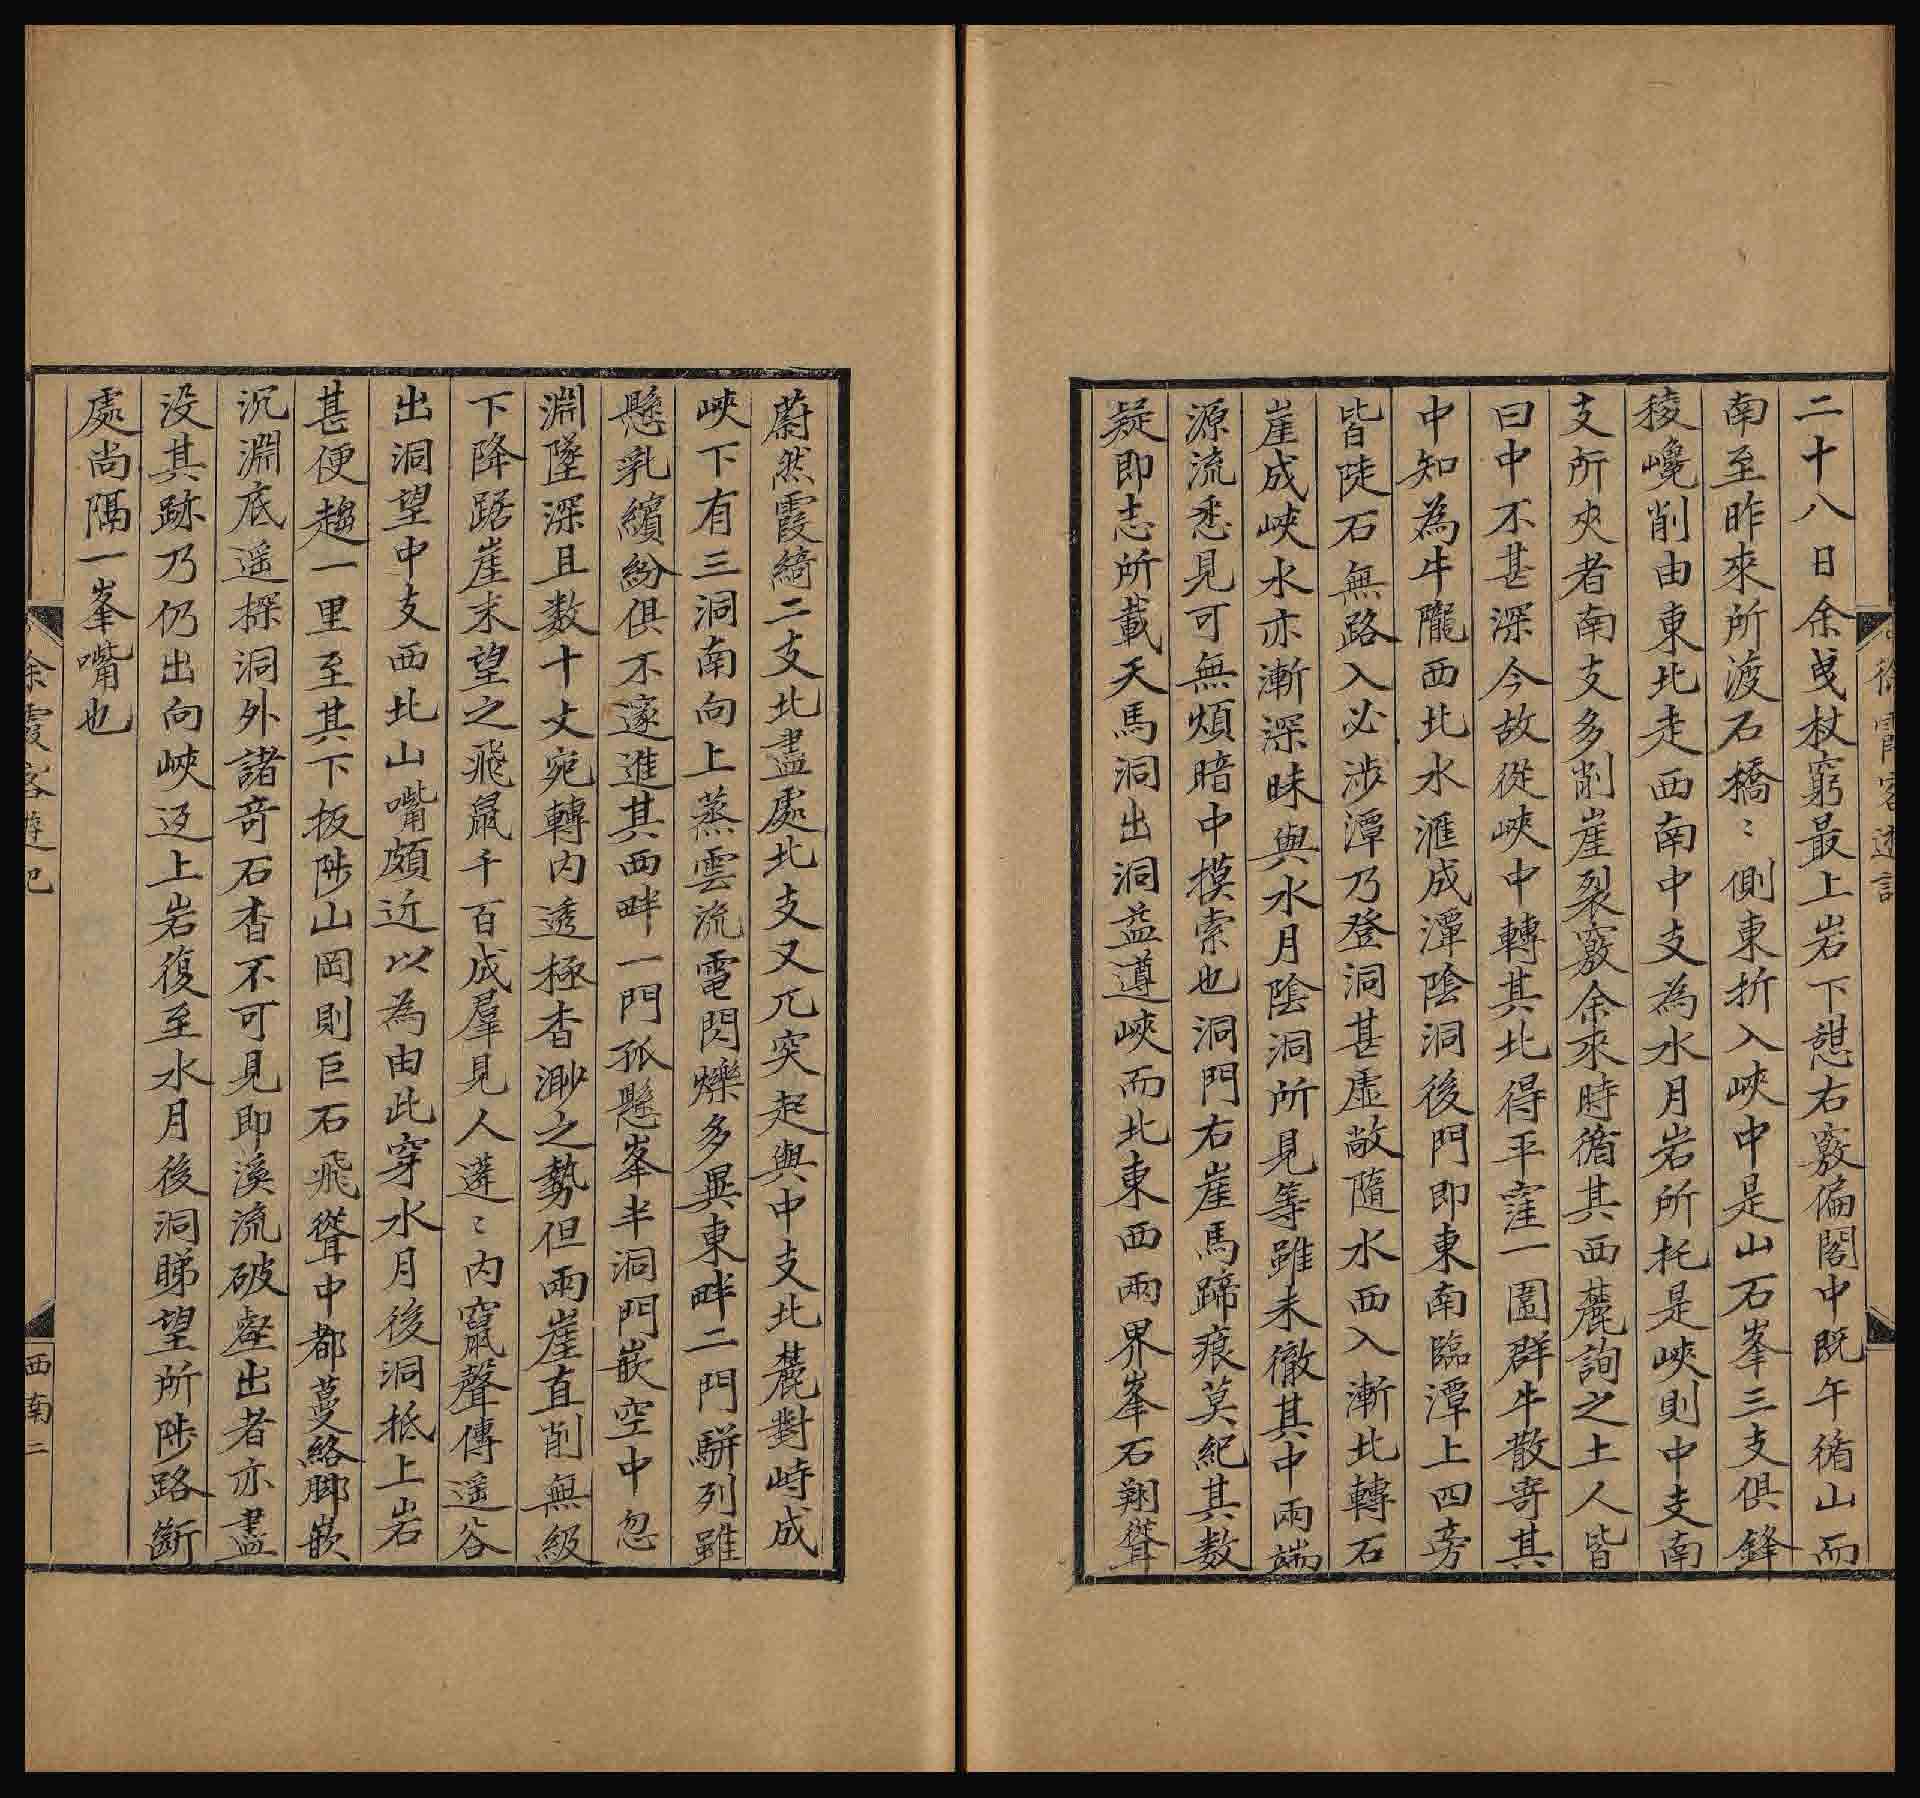 二十八日余曳杖窮最上岩下憇右竅偏閣中既午循山而
南至昨來所渡石橋〻側東折入峽中是山石峯三支俱鋒
稜巉削由東北走西南中支為水月岩所托是峽則中支南
支所夾者南支多削崖裂竅余來時循其西麓詢之土人皆
曰中不甚深今故從峽中轉其北得平窪一圍群牛散寄其
中知為牛隴西北水滙成潭陰洞後門即東南臨潭上四旁
皆陡石無路入必涉潭乃登洞甚虛敞隨水西入漸北轉石
崖成峽水亦漸深昧與水月陰洞所見等雖未徹其中兩端
源流悉見可無煩暗中摸索也洞門右崖馬蹄痕莫紀其数
疑即志所載天馬洞出洞益遵峽而北東西兩界峯石翔聳
蔚然霞綺二支北盡處北支又兀突起與中支北麓對峙成
峽下有三洞南向上蒸雲流電閃爍多異東畔二門駢列雖
懸乳繽紛俱不邃進其西畔一門孤懸峯半洞門嵌空中忽
淵墜深且数十丈宛轉内透極杳渺之勢但兩崖直削無級
下降踞崖末望之飛鼠千百成羣見人蓬〻内竄聲傳遥谷
出洞望中支西北山嘴頗近以為由此穿水月後洞抵上岩
甚便趨一里至其下扳陟山岡則巨石飛聳中都蔓絡脚嵌
沉淵底遥探洞外諸竒石杳不可見即溪流破壑出者亦盡
没其跡乃仍出向峽返上岩復至水月後洞睇望所陟路斷
處尚隔一峯嘴也
徐霞客遊記
西南二